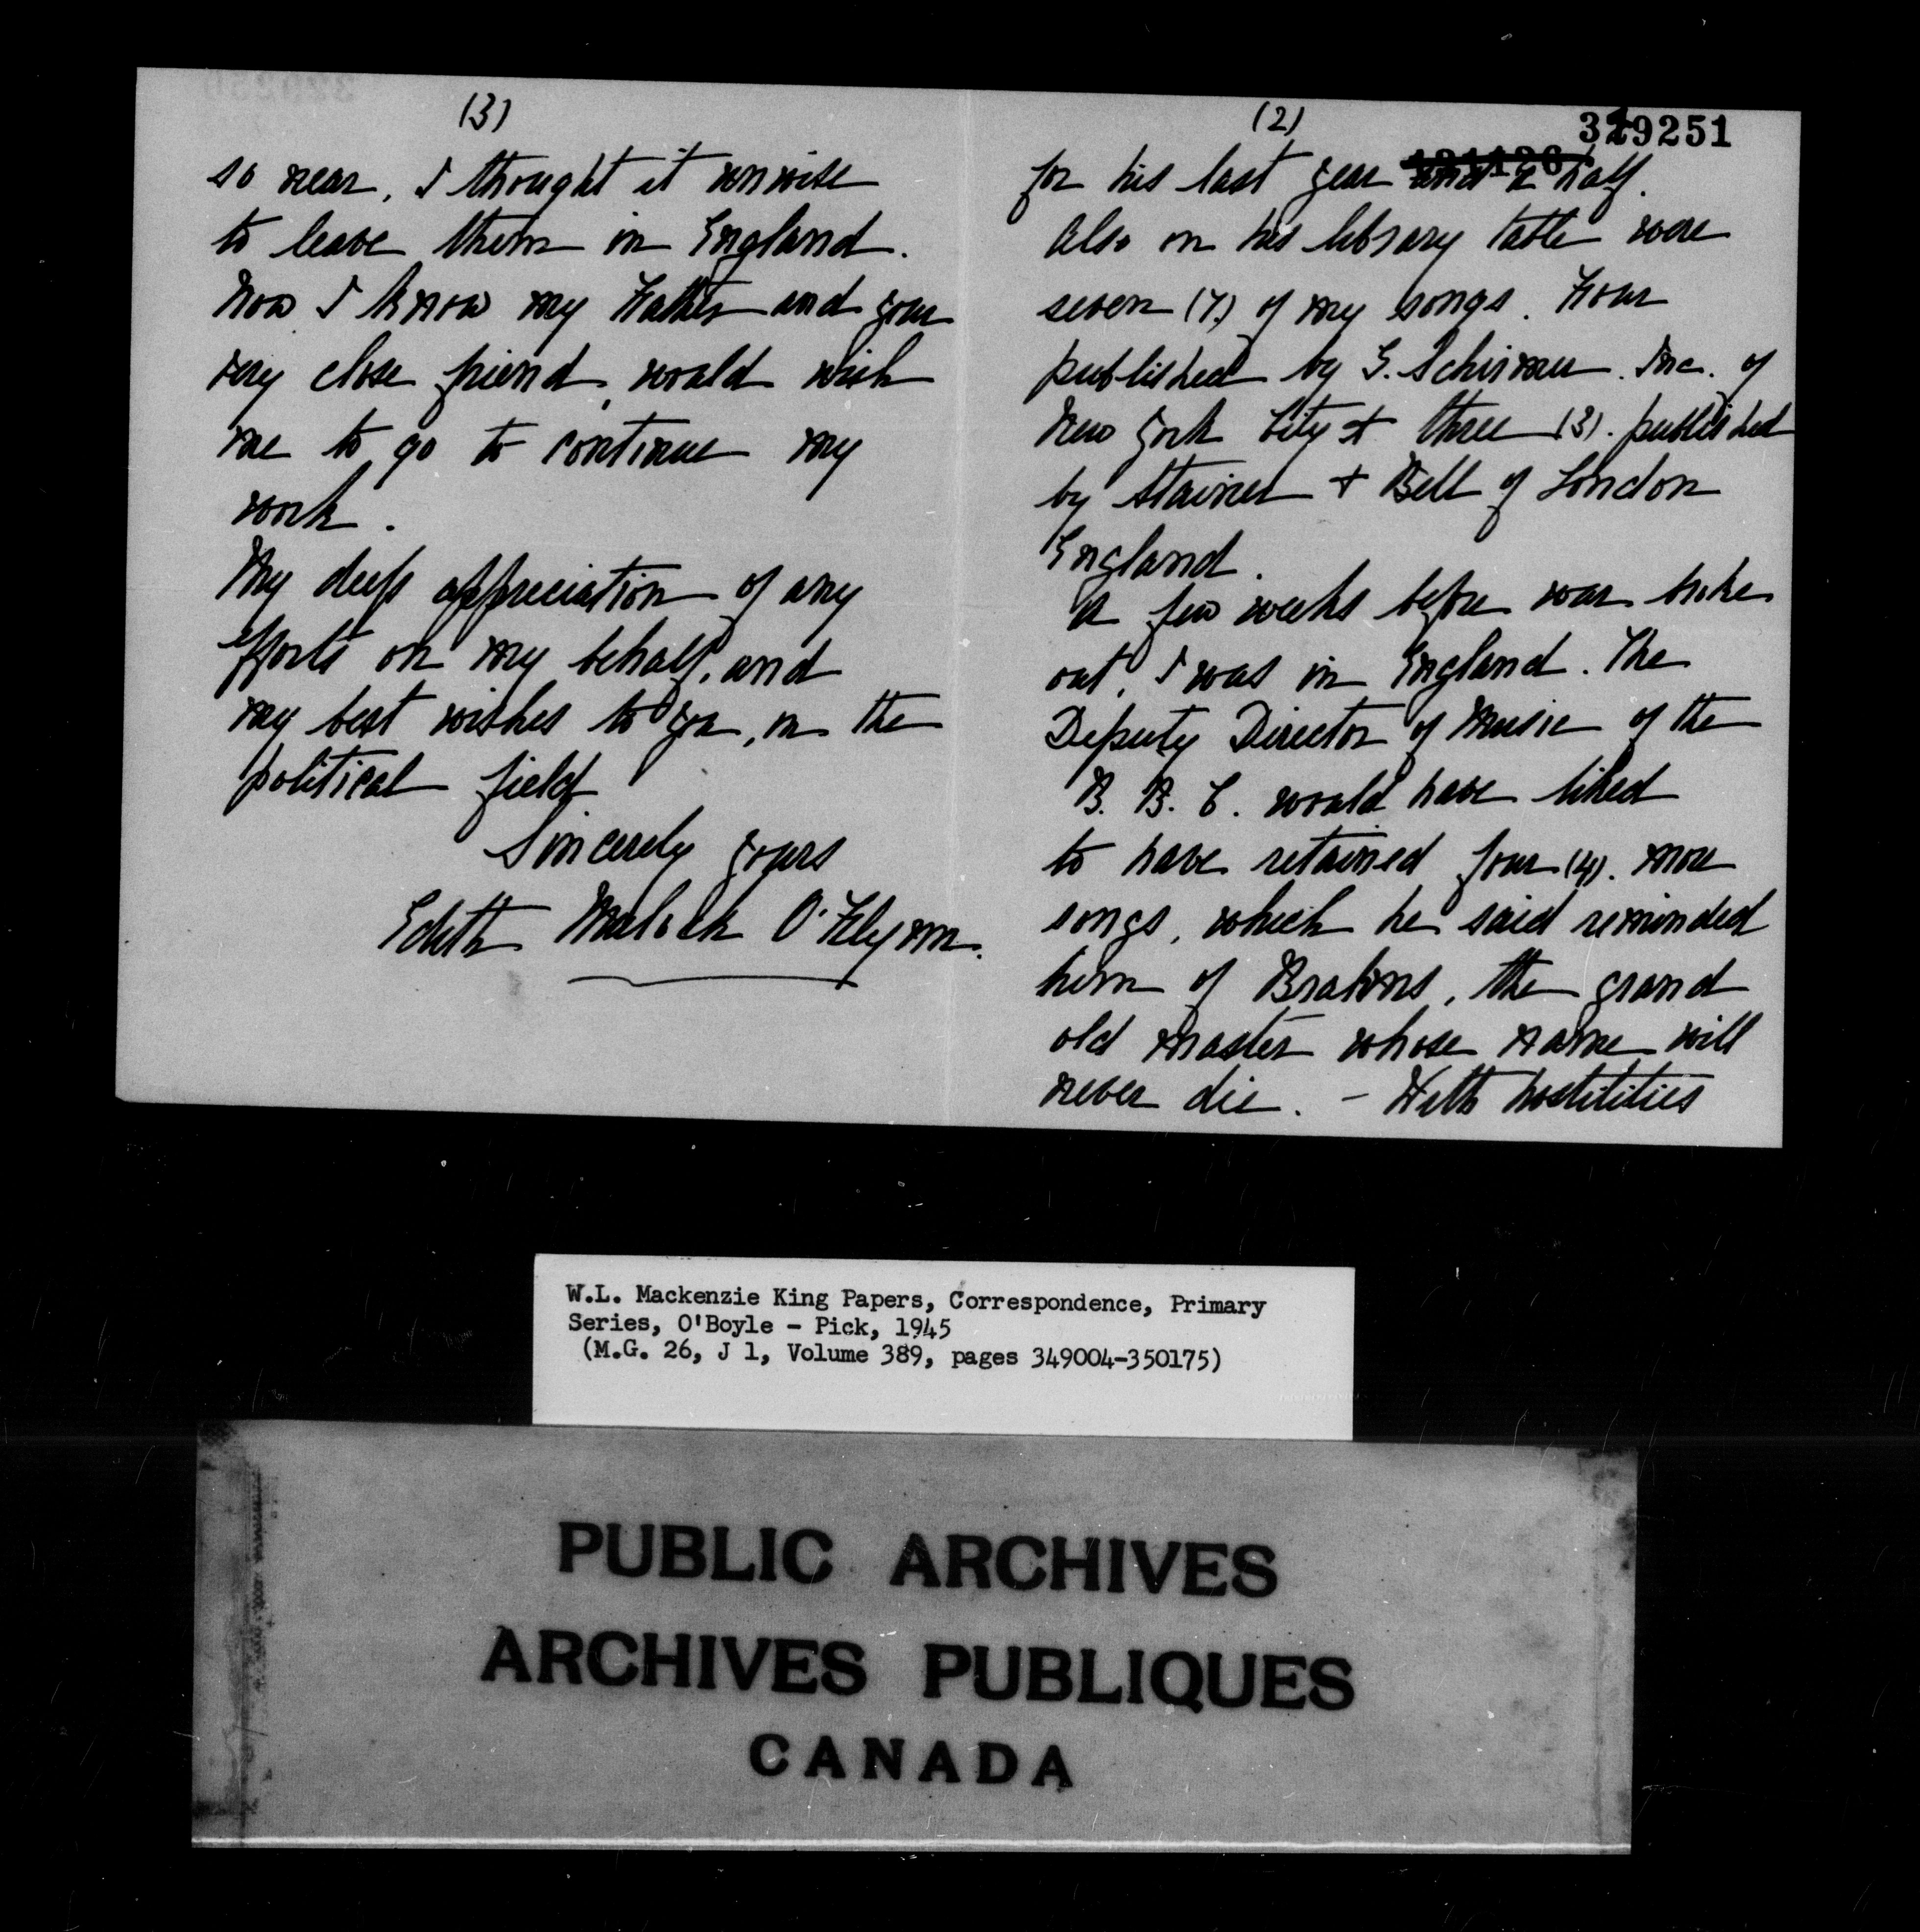 (3)
so near, I thought it unwise
to leave them in England.
Now I know my Father and your
very close friend, would wish
me to go to continue my
work.
My deep appreciation of any
efforts on my behalf, and
my best wishes to you, in the
political field
Sincerely yours
Edith Mulock O'Flynn.
(2)
349251
for his last year and a half.
Also on his library table were
seven (7) of my songs. Four
published by G. Schirmer. Inc. of
New York City + three (3). published
by Stainer + Bell of London
England.
A few weeks before war broke
out, I was in England. The
Deputy Director of Music of the
B. B. C. would have liked
to have retained four (4). more
songs, which he said reminded
him of Brahms, the grand
old master whose name will
never die. - With hostilities
W.L. Mackenzie King Papers, Correspondence, Primary
Series, O'Boyle - Pick, 1945
(M.G. 26, J 1, Volume 389, pages 349004-350175)
PUBLIC ARCHIVES
ARCHIVES PUBLIQUES
CANADA